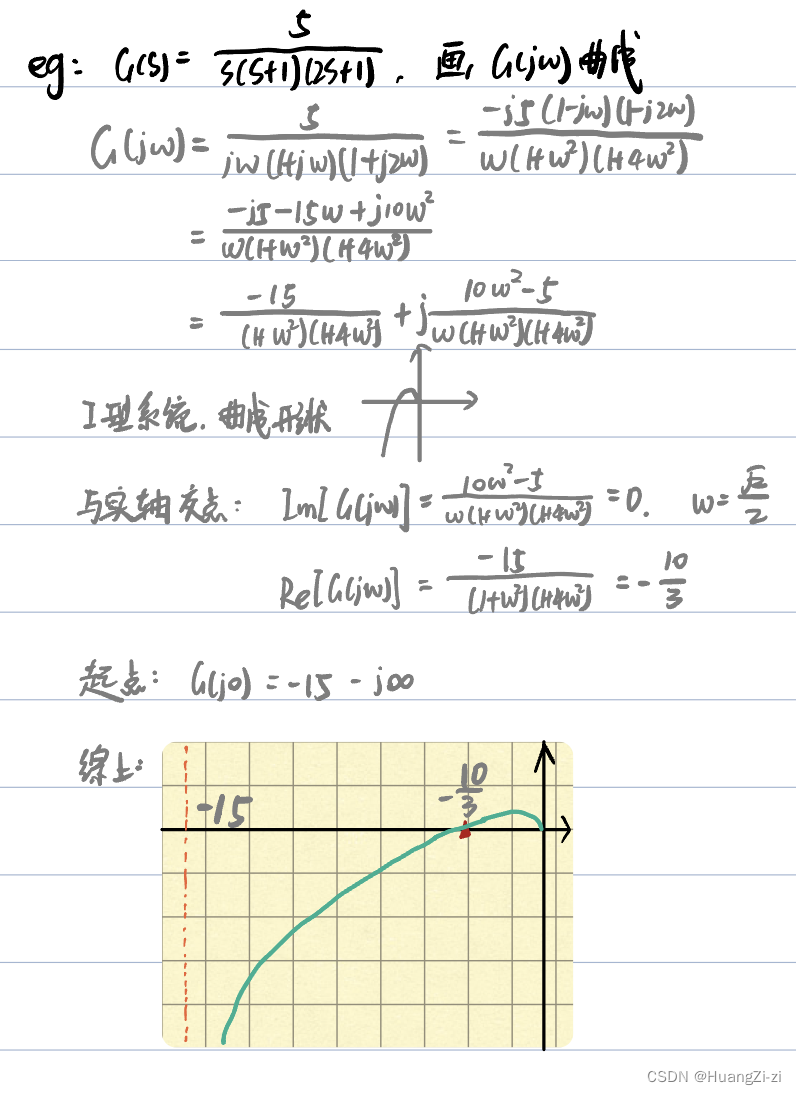 eg: G(s)= 5/(s(s+1)(2s+1)). 画 G(jw)曲线
G(jw)= 5/(jw(1+jw)(1+j2w)) = -j5(1-jw)(1-j2w)/(w(1+w²)(1+4w²))
= (-j5-15w+j10w²)/(w(1+w²)(1+4w²))
= -15/((1+w²)(1+4w²)) + j (10w²-5)/(w(1+w²)(1+4w²))
I型系统. 曲线形状
与实轴交点: Im[G(jw)]= (10w²-5)/(w(1+w²)(1+4w²)) =0. w= √2/2
Re[G(jw)] = -15/((1+w²)(1+4w²)) = - 10/3
起点: G(j0) = -15 - j∞
综上:
-15
- 10/3
CSDN @HuangZi-zi